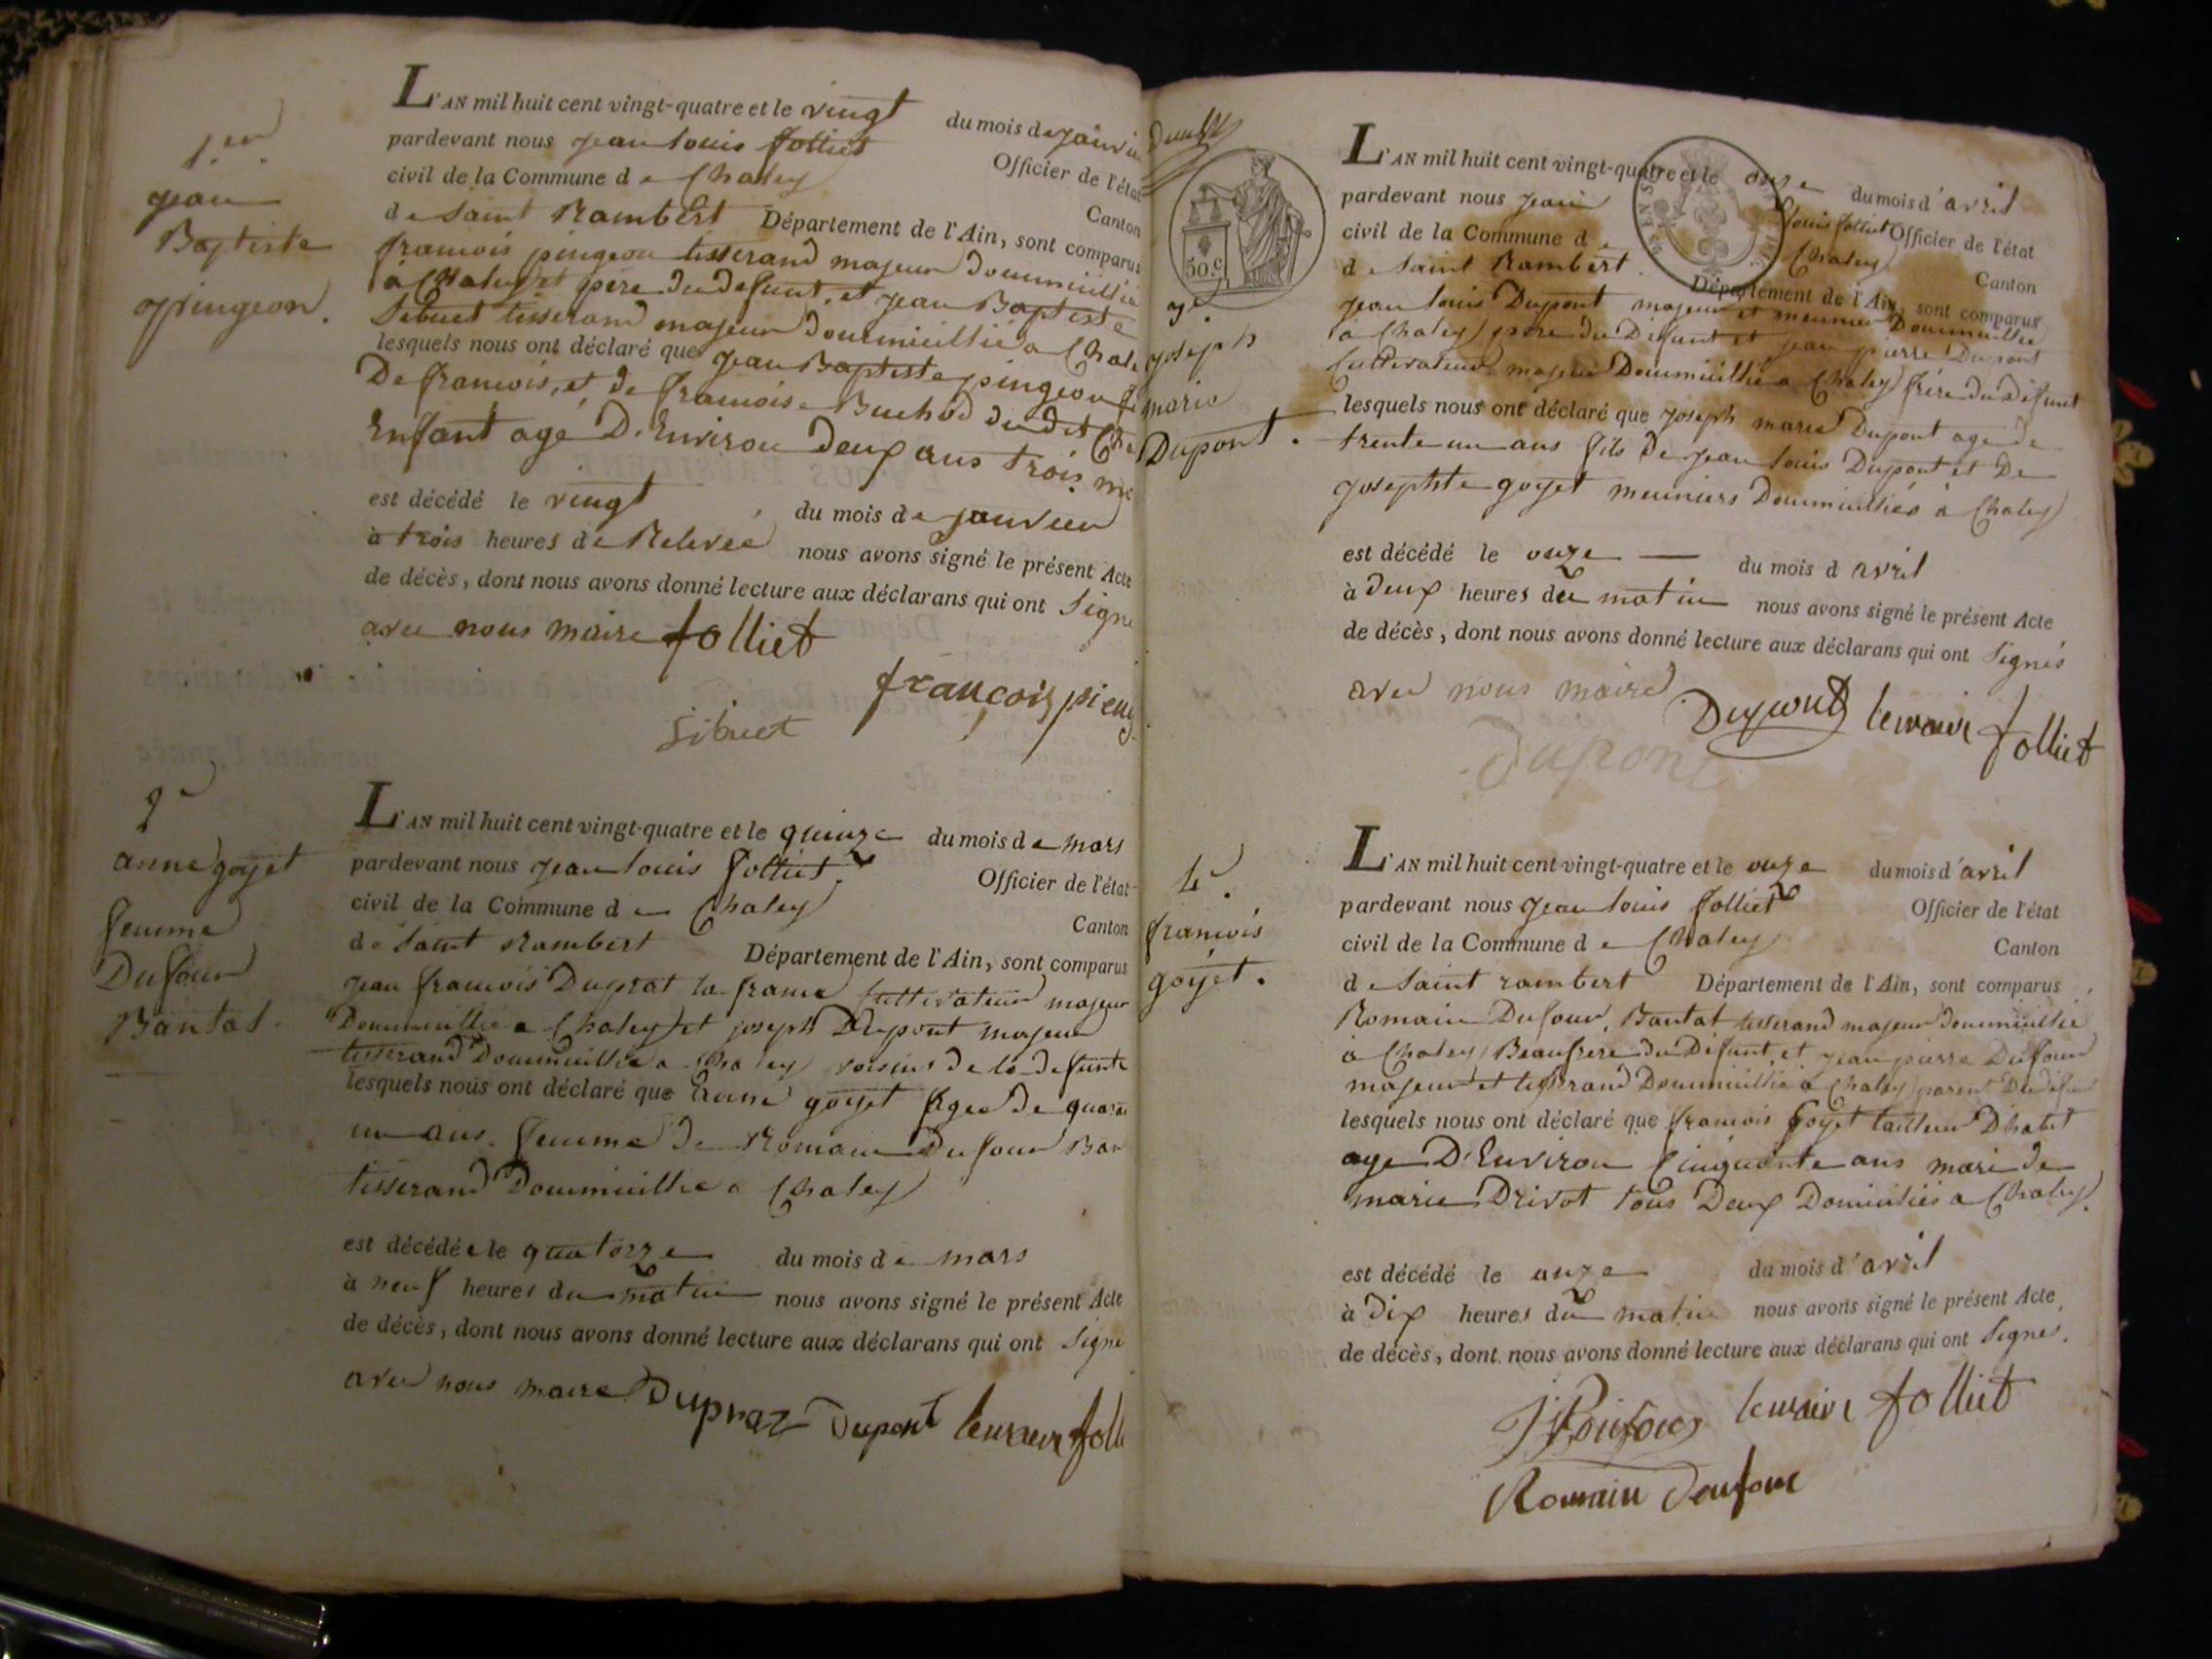 1.er
jean
Baptiste
pingeon.
L'AN mil huit cent vingt-quatre et le vingt du mois de janvie
pardevant nous jean louis folliet Officier de l'état
civil de la Commune de Chaley Canton
de Saint Rambert Département de l'Ain, sont comparus
francois pingeon tisserand majeur Doumicillié
a Chaley et père du defunt, et jean Baptiste
Sibuet tisserand majeur Doumicillié a Chale
lesquels nous ont déclaré que jean Baptiste pingeon fi
De francois, et de francoise Buchod dudit Cha
Enfant agé D'Environ Deux ans trois
est décédé le vingt du mois de janvier
à trois heures de Relevée nous avons signé le présent Acte
de décès, dont nous avons donné lecture aux déclarans qui ont Signé
avec nous maire folliet
françois
Sibuet
2e
anne goyet
femme
Dufour
Bantat.
L'AN mil huit cent vingt-quatre et le quinze du mois de mars
pardevant nous jean louis folliet. Officier de l'état
civil de la Commune de Chaley Canton
de Saint Rambert Département de l'Ain, sont comparus
jean francois Duprat la france Cultivateur majeur
Doumicillié a Chaley et joseph Dupont majeur
tisserand Doumicillié a Chaley voisins de la defunte
lesquels nous ont déclaré que anne goyet agée de quara
un ans. femme de Romain Dufour Ban
tisserand Doumicillié a Chaley
est décédée le quatorze du mois de mars
à neuf heures du matin nous avons signé le présent Acte
de décès, dont nous avons donné lecture aux déclarans qui ont Signé
avec nous maire Dupraz Dupont le maire foll
50.c
3e.
joseph
marie
Dupont.
L'AN mil huit cent vingt-quatre et le onze du mois d'avril
pardevant nous jean louis folliet Officier de l'état
civil de la Commune de Chaley Canton
de Saint Rambert. Département de l'Ain, sont comparus
jean louis Dupont majeur et meunier Doumicillié
a Chaley père du Défunt et jean pierre Dupont
Cultivateur majeur Doumicillié a Chaley frère du Défunt
lesquels nous ont déclaré que joseph marie Dupont age de
trente un ans fils De jean louis Dupont et De
josephte goyet meuniers Doumicilliés à Chaley
est décédé le onze du mois d avril
à Deux heures du matin nous avons signé le présent Acte
de décès, dont nous avons donné lecture aux déclarans qui ont Signés
avec nous maire Dupont le maire folliet
dupont
4e.
francois
goyet.
L'AN mil huit cent vingt-quatre et le onze du mois d'avril
pardevant nous jean louis folliet Officier de l'état
civil de la Commune de Chaley Canton
de Saint rambert Département de l'Ain, sont comparus
Romain Dufour, Bantat tisserand majeur Doumicillié
à Chaley Beaufrere du Défunt, et jean pierre Dufour
majeur et tisserand Doumicillié a Chaley parent Du défun
lesquels nous ont déclaré que francois Goyet tailleur D'habit
age D'Environ Cinquante ans mari de
marie Drivot tous Deux Domiciliés a Chaley.
est décédé le onze du mois d'avril
à Dix heures du matin nous avons signé le présent Acte
de décès, dont nous avons donné lecture aux déclarans qui ont Signés.
le maire folliet
Romain Doufour